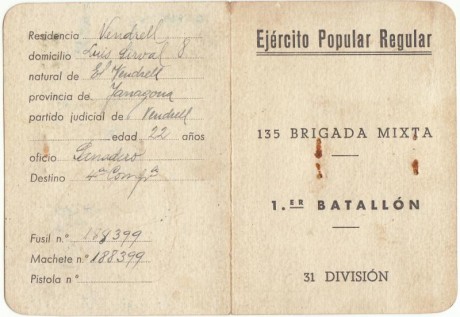 Residencia Vendrell
domicilio Luis Sirval 8
natural de El Vendrell
provincia de Tarragona
partido judicial de Vendrell
edad 22 años
oficio
Destino 4ª Compª
Fusil n.º 188399
Machete n.º 188399
Pistola n.º
Ejército Popular Regular
135 BRIGADA MIXTA
1.ER BATALLÓN
31 DIVISIÓN